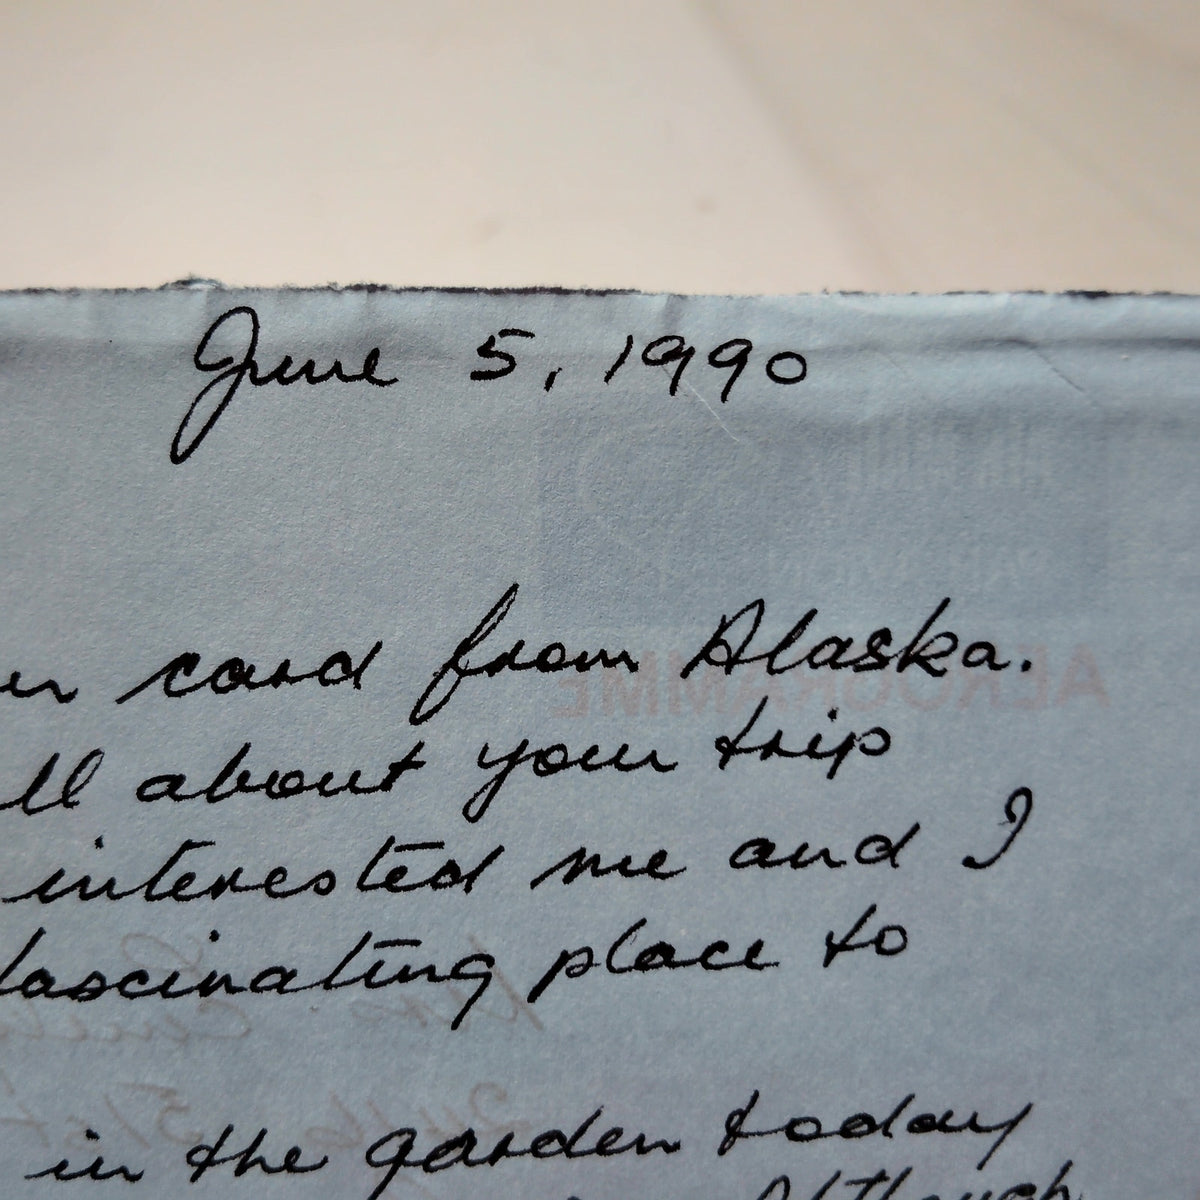 June 5, 1990
card from Alaska.
ll about your trip
interested me and I
fascinating place to
in the garden today
Although
AEROGRAMME